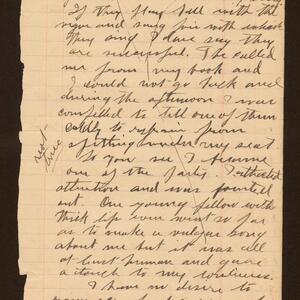 If they play ball with the
vigor and
they sing I dare say they
are successful. The called
me from my book and
I could not go back and
during the afternoon I was
compelled to tell one of them
to refrain from
spitting under my seat
So you see I became
one of the party. I attracted
attention and was pointed
out. One young fellow with
thick lips even went so far
as to make a vulgar song
about me but it was all
at least human and gave
a touch to my loneliness.
I have no desire to
next
line